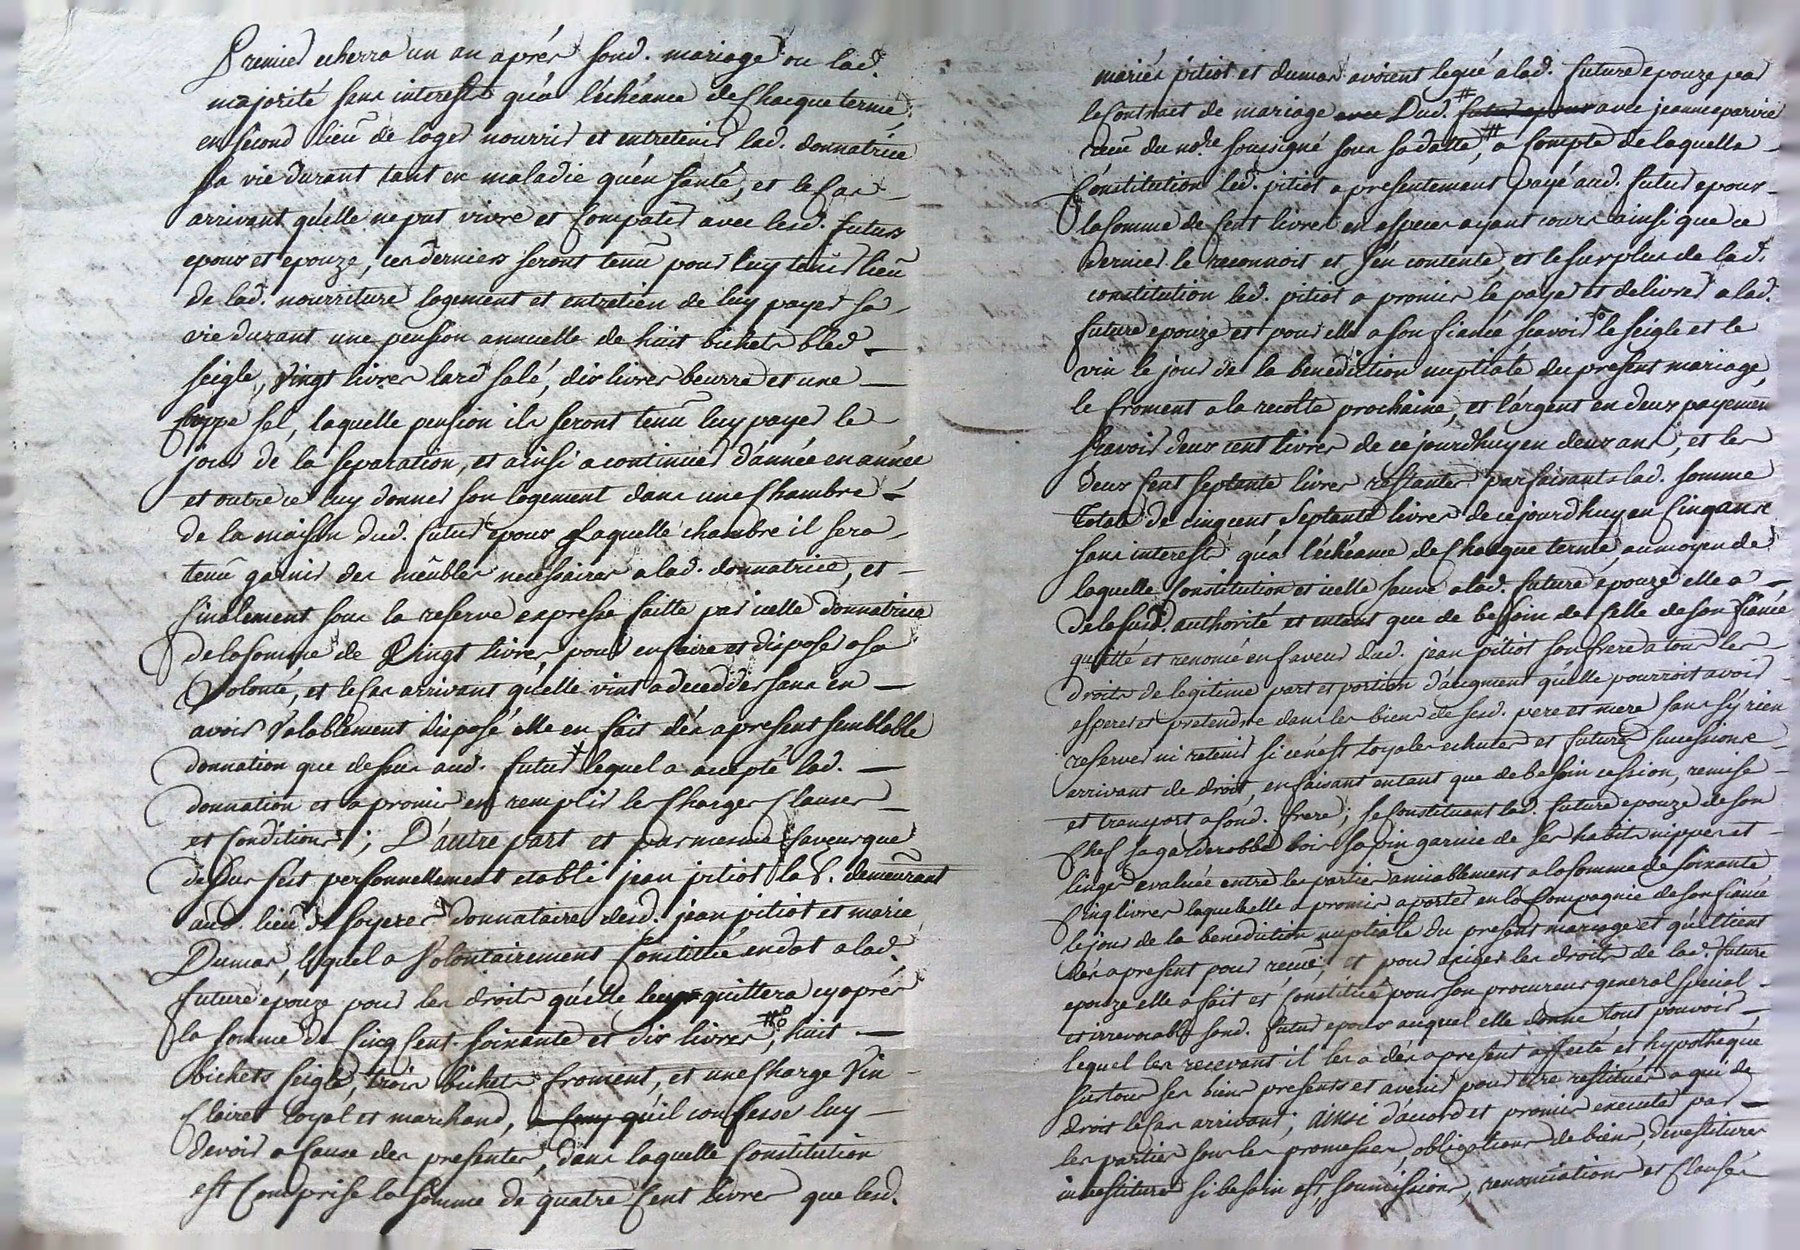 Premier echerra un an aprés sond. mariage ou lad.
majorité sans interest qu'a l'échéance de Chacque terme,
en second lieu de loger nourrir et entretenir lad. donnatrice
sa vie durant tant en maladie qu'en santé, et le Cas
arrivant qu'elle ne put vivre et Compatir avec lesd. futurs
epoux et epouze, ces derniers seront tenu pour luy tenir lieu
de lad. nourriture logement et entretien de luy payer sa
vie durant une pension annuelle de huit bichets bled
seigle, vingt livres lard salé, dix livres beurre et une
coppe sel, laquelle pension ils seront tenu luy payer le
jour de la separation, et ainsi a continuer d'année en année
et outre ce luy donner son logement dans une Chambre
de la maison dud. futur epoux laquelle chambre il sera
tenu garnir des meubles necessaires a lad. donnatrice, et
finalement sous la reserve expresse faitte par icelle donnatrice
de la somme de Vingt livres, pour en faire et disposer a sa
Volonté, et le Cas arrivant qu'elle vint a deceder sans en
avoir Valablement disposé elle en fait dés a present semblable
donnation que dessus aud. futur lequel a accepté lad.
donnation et a promis en remplir les Charges Clauses
et Conditions; D'autre part et par mesme faveur que
dessus s'est personnellement etabli jean pitiot lad. demeurant
aud. lieu de soyeres donnataire desd. jean pitiot et marie
Dumas, lequel a Volontairement Constitué en dot a lad.
future epouze pour les droits qu'elle luy quittera cy aprés
la somme de Cinq Cent soixante et dix livres, # huit
bichets seigle, trois bichets froment, et une Charge Vin
Clairet loyal et marchand, qu'il confesse luy
devoir a Cause des presentes, dans laquelle Constitution
est Comprise la somme de quatre Cent livres que lesd.
mariés pitiot et dumas avoient legué a lad. future epouze par
le Contrat de mariage avec Dud. # futur epoux avec jeanne parvie
receu du nore. soussigné sous sa datte, # a Compte de laquelle
Constitution led. pitiot a presentement payé aud. futur epoux
la somme de Cent livres en especes ayant cours ainsi que ce
dernier le reconnoit et s'en contente, et le surplus de lad.
constitution led. pitiot a promis le payer et delivrer a lad.
future epouze et pour elle a son fiancé scavoir le seigle et le
vin le jour de la benediction nuptiale du present mariage,
le froment a la recolte prochaine, et l'argent en deux payemen
scavoir deux cent livres de ce jourdhuy en deux ans, et les
deux Cent septante livres restantes parfaisant lad. somme
totale de cinq cent septante livres de ce jourdhuy en Cinq ans
sans interest qu'a l'échéance de Chacque terme, au moyen de
laquelle Constitution et icelle sauve a lad. future épouze elle a
de lesusd. authorité et entant que de besoin de Celle de son fiancé
quitté et renoncé en faveur dud. jean pitiot son frere a tous les
droits de legitime part et portion d'augment qu'elle pourroit avoir
esperer et pretendre dans les biens de sesd. pere et mere sans s'y rien
reserver ni retenir si ce n'est loyales echutes et futures successions
arrivant de droit, en faisant entant que de besoin cession, remise
et transport a sond. frere; se Constituant lad. future epouze de son
Chef sa garderobbe bois sapin garnie de ses habits nippes et
linges evaluée entre les parties amiablement a la somme de soixante
Cinq livres laquelle elle a promis aporter en la Compagnie de son fiancé
le jour de la benediction nuptiale du present mariage et qu'il tient
dés a present pour receue, et pour exiger les droits de lad. future
epouze elle a fait et Constitué pour son procureur general special
et irrevocable sond. futur epoux auquel elle donne tout pouvoir
lequel les recevant il les a dés a present affecté et hypothéqué
sur tous ses biens presents et avenir pour etre restitués a qui de
droit le Cas arrivant; ainsi d'accord et promis executer par
les parties sous les promesses, obligations de biens, devestitures
investitures si besoin est, soumissions, renonciations et Clauses